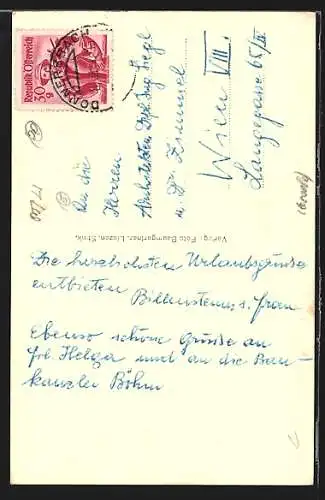 Republik Österreich
30 g
DONNERSBACH
An die
Herren
Architekten Dipl. Ing. Siegl
u. Dr.
Wien VIII.
Langegasse 65/
Verlag: Foto Baumgartner, Liezen, Stmk.
Die herzlichsten Urlaubsgrüsse
entbieten
Billensteiner u. Frau
Ebenso schöne Grüsse an
Frl. Helga und an die Bau-
kanzlei Böhm